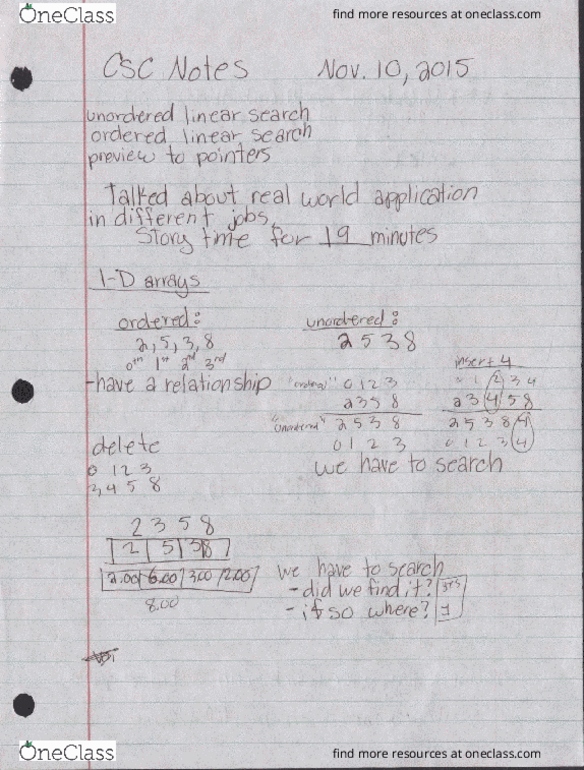 OneClass
find more resources at oneclass.com
CSC Notes Nov. 10, 2015
unordered linear search
ordered linear search
preview to pointers
Talked about real world application
in different jobs
Story time for 19 minutes
1-D arrays
ordered: unordered:
2, 5, 3, 8 2 5 3 8
0th 1st 2nd 3rd
insert 4
-have a relationship "ordered" 0 1 2 3 0 1 2 3 4
2 3 5 8 2 3 4 5 8
"unordered" 2 5 3 8 2 5 3 8 4
0 1 2 3 0 1 2 3 4
delete
we have to search
0 1 2 3
3 4 5 8
2 3 5 8
2 5 3 8
2.00 6.00 3.00 2.00
8.00
we have to search
- did we find it?
- if so where?
OneClass
find more resources at oneclass.com